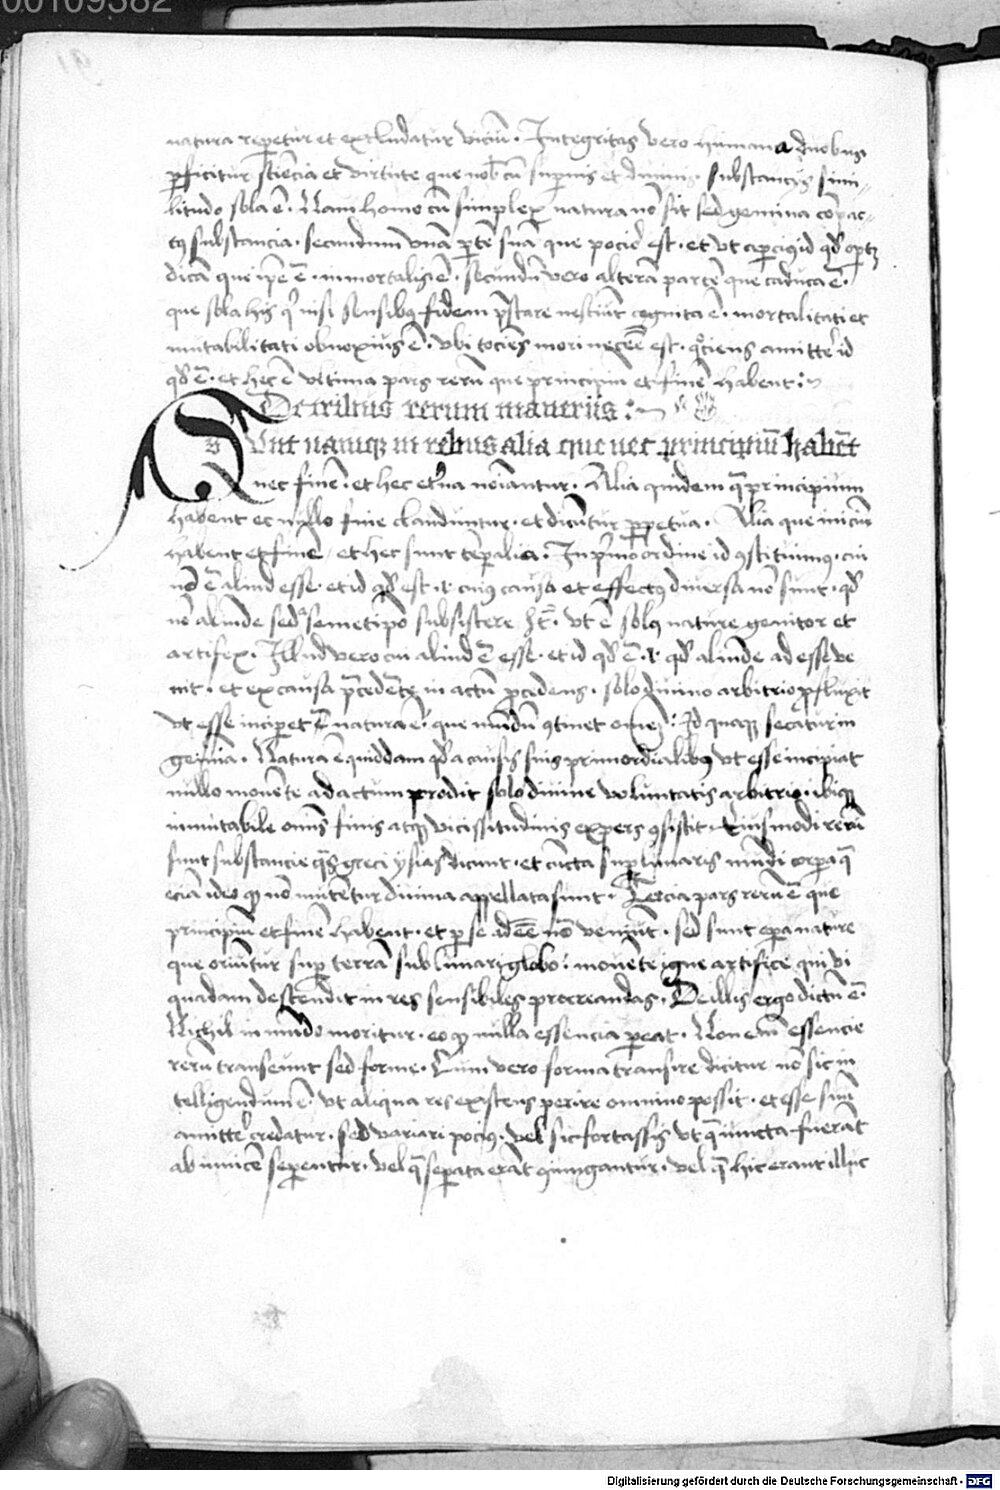 00109382
natura repetur et excludatur viciu. Integritas vero humana duobus
perficitur sciencia et virtute que nob cu supernis et diuinis substancijs simi
litudo sola e. Nam homo cu simplex natura no sit sed gemina copac
tus substancia. secundum vna parte sua que pocior est. et vt apercius id qd oportet
dica que ipe e. inmortalis e. secundu vero altera parte que caduca e.
que sola his qi nisi sensibus fidem prestare nesciut cognita e. mortalitati et
mutabilitati obnoxius e. vbi tociens mori necesse est. quociens amittere id
qd e. et hec e vltima pars reru que principiu et fine habent:
De tribus rerum maneriis:
Sunt namque in rebus alia que nec principiu habet
nec fine. et hec eterna noiantur. Alia quidem que principium
habent et nullo fine clauduntur. et dicutur perpetua. Alia que iniciu
habent et fine, et hec sunt temporalia. In primo ordine id constituimus. cui
no e aliud esse. et id qd est. i. cuius causa et effectus diuersa no sunt. qd
no aliunde sed a semetipo subsistere ht. vt e solus nature genitor et
artifex. Illud vero cui aliud e esse. et id qd e. i. qd aliunde ad esse ve
nit. et ex causa precedente in actu procedens. solo diuino arbitrio profluxit
vt esse inciperet natura e. que mundu continet omne. Id quoque secatur in
gemina. Natura e quiddam qd a causis suis primordialibus vt esse incipiat
nullo mouente ad actum prodiit solo diuine voluntatis arbitrio. ibique
inmutabile omis finis atque vicissitudinis expers consistit. Eiusmodi reru
sunt substancie quas greci ysias dicunt. et cuncta superlunaris mudi corpora que
eciam ideo quod no mutetur diuina appellata sunt. Tercia pars reru e que
principiu et fine habent. et per se ad esse no veniut. sed sunt opera nature
que oriutur super terra sub lunari globo. mouente igne artifice qui vi
quadam descendit in res sensibiles procreandas. De illis ergo dictu e.
Nichil in mudo moritur. eo quod nulla essencia pereat. Non eni essencie
reru transeunt sed forme. Cum vero forma transire dicitur no sic in
telligendum e. vt aliqua res existens perire omnino possit. et esse suu
amittere credatur. sed variari pocius. vel sic fortassis vt que iuncta fuerat
ab inuice separentur. vel que separata erat coniungantur. vel que hic erant illuc
Digitalisierung gefördert durch die Deutsche Forschungsgemeinschaft - DFG